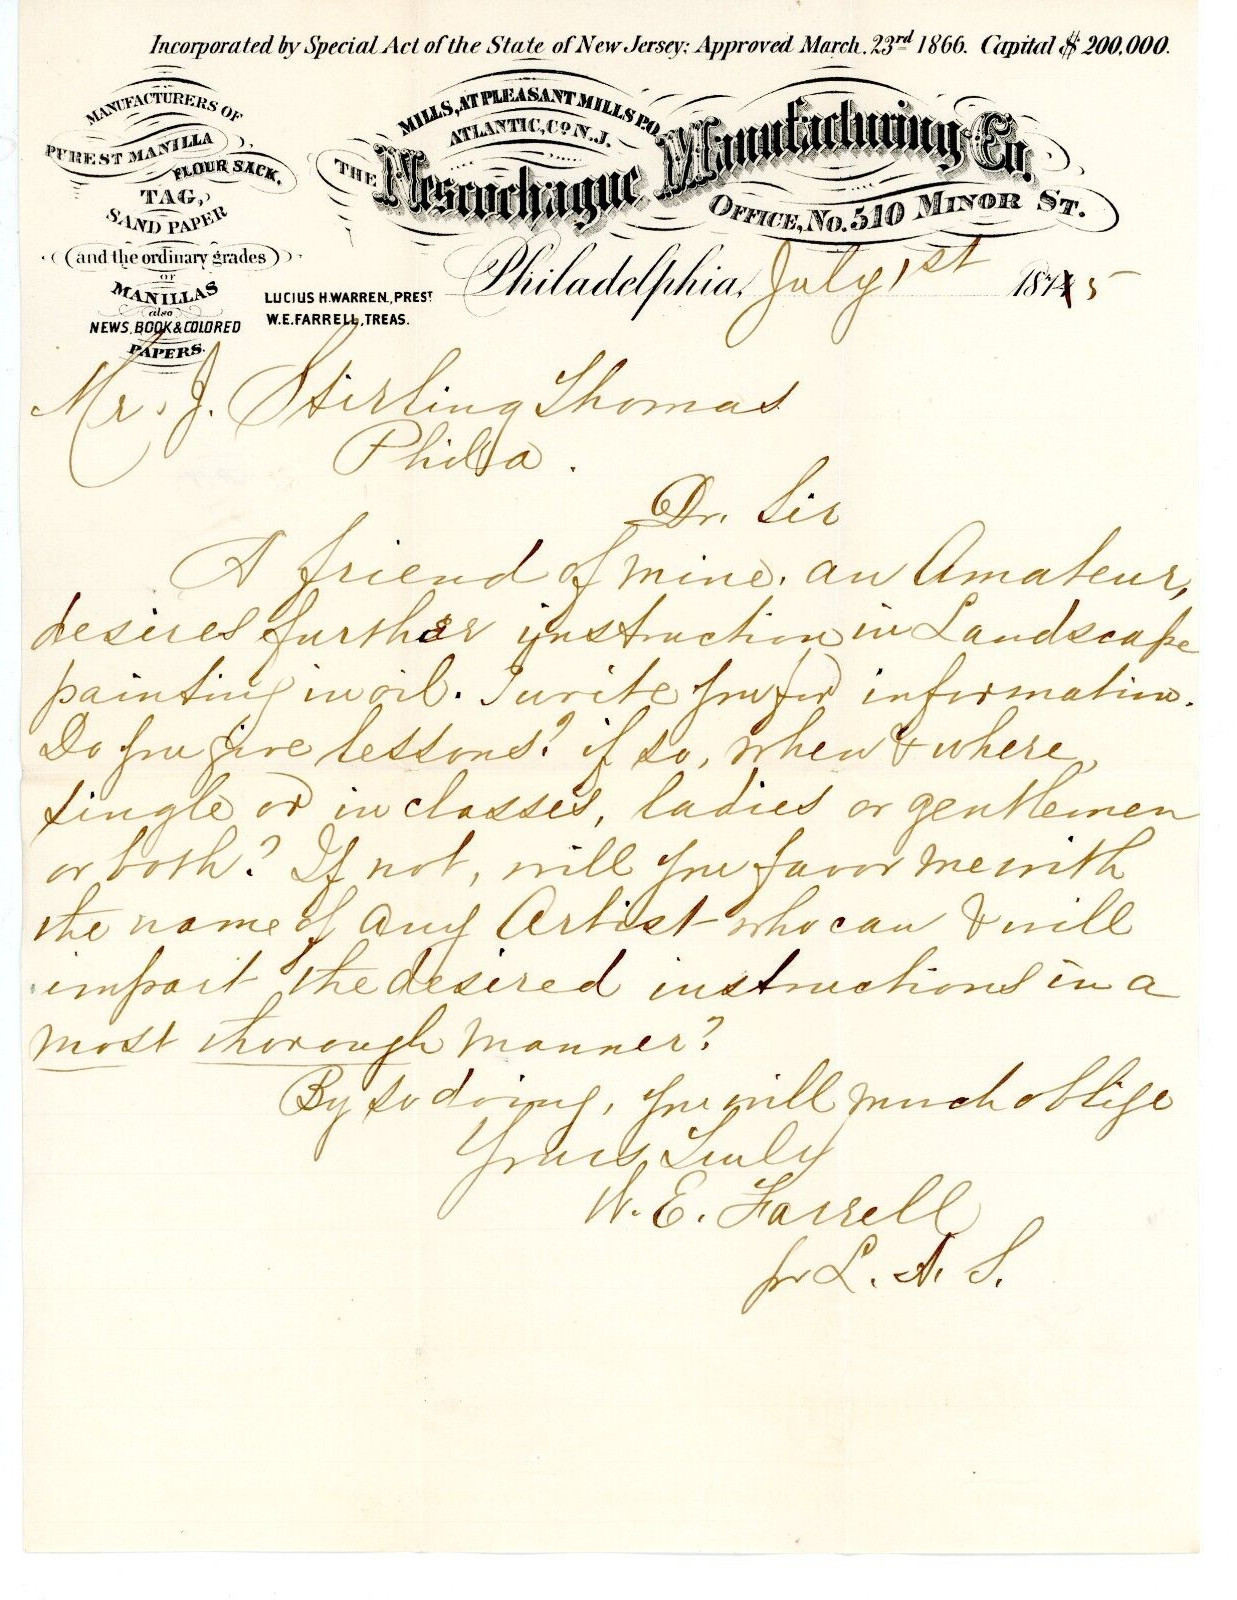 Incorporated by Special Act of the State of New Jersey: Approved March. 23rd 1866. Capital $ 200,000.
MANUFACTURERS OF
PUREST MANILLA
FLOUR SACK,
TAG,
SAND PAPER
(and the ordinary grades)
OF
MANILLAS
also
NEWS, BOOK & COLORED
PAPERS.
MILLS, AT PLEASANT MILLS P.O.
ATLANTIC, Co N.J.
THE Nescochague Manufacturing Co.
OFFICE, No. 510 MINOR ST.
LUCIUS H. WARREN, PREST
W. E. FARRELL, TREAS.
Philadelphia, July 1st 1874 5
Mr. J. Stirling Thomas
Phila.
Dr. Sir
A friend of mine, an Amateur,
desires further instruction in Landscape
painting in oil. I write you for information.
Do you give lessons? if so, when & where,
single or in classes, ladies or gentlemen
or both? If not, will you favor me with
the name of any Artist who can & will
impart the desired instructions in a
most thorough manner?
By so doing, you will much oblige
Yours Truly
W. E. Farrell
for L. A. S.